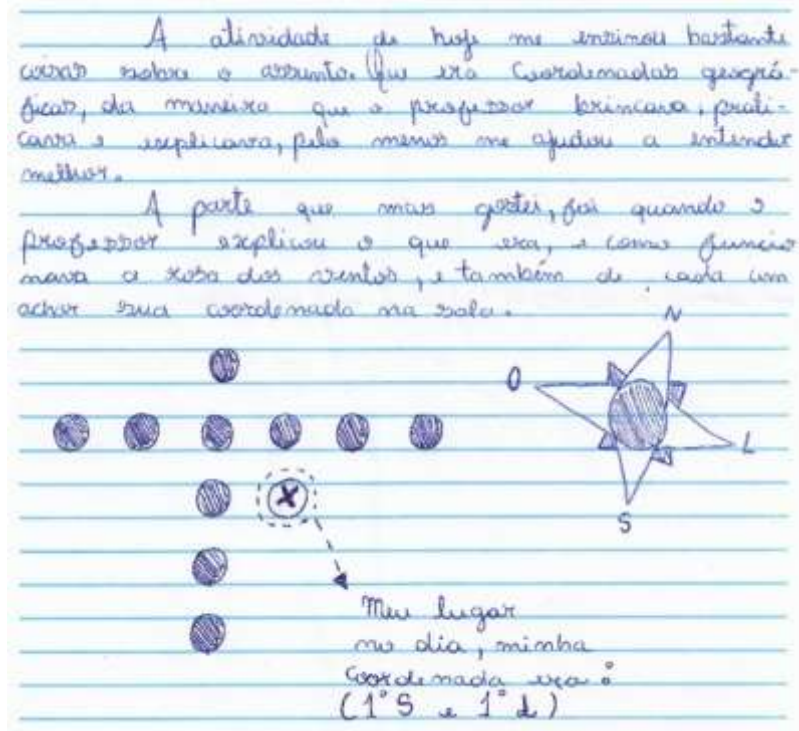 A atividade de hoje me ensinou bastante
coisas sobre o assunto. Que era Coordenadas geográ-
ficas, da maneira que o professor brincava, prati-
cava e explicava, pelo menos me ajudou a entender
melhor.
A parte que mais gostei, foi quando o
professor explicou o que era, e como funcio
nava a rosa dos ventos, e também de cada um
achar sua coordenada na sala.
N
O
L
S
X
Meu lugar
no dia, minha
Coordenada era:
(1° S e 1° L)